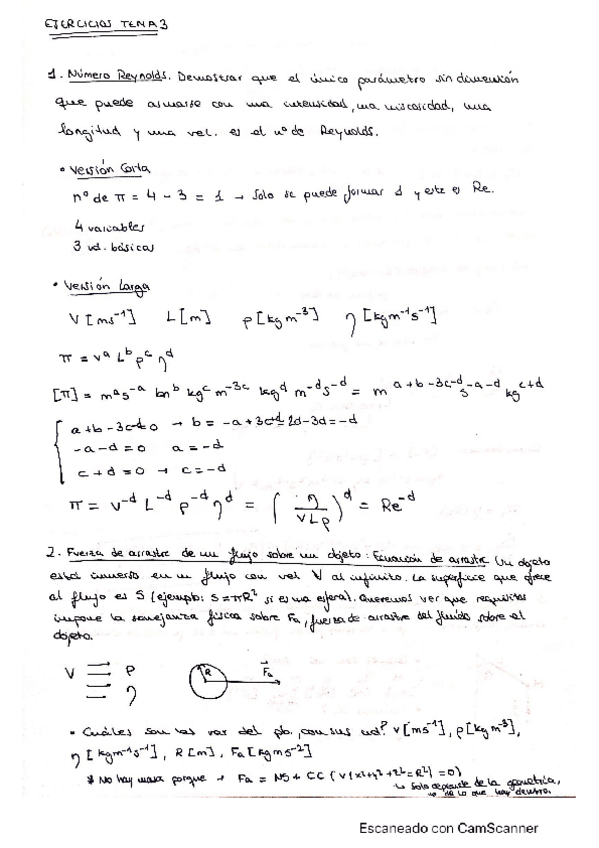 EJERCICIOS TEMA 3
1. Número Reynolds. Demostrar que el único parámetro sin dimensión
que puede armarse con una intensidad, una viscosidad, una
longitud y una vel. es el nº de Reynolds.
• Versión Corta
nº de π = 4 - 3 = 1 → Solo se puede formar 1 y este es Re.
4 variables
3 ud. básicas
• Versión Larga
V [ms⁻¹] L [m] ρ [kg m⁻³] η [kg m⁻¹s⁻¹]
π = vᵃ Lᵇ ρᶜ ηᵈ
[π] = mᵃs⁻ᵃ mᵇ kgᶜ m⁻³ᶜ kgᵈ m⁻ᵈs⁻ᵈ = m^(a+b-3c-d) s^(-a-d) kg^(c+d)
a+b-3c-d=0 → b = -a+3c+d= 2d-3d=-d
-a-d=0 a=-d
c+d=0 → c=-d
π = v⁻ᵈ L⁻ᵈ ρ⁻ᵈ ηᵈ = (η / VLρ)ᵈ = Re⁻ᵈ
2. Fuerza de arrastre de un flujo sobre un objeto: Ecuación de arrastre Un objeto
está inmerso en un flujo con vel V al infinito. La superficie que ofrece
al flujo es S (ejemplo: S=πR² si es una esfera). Queremos ver que requisitos
impone la semejanza física sobre Fa, fuerza de arrastre del fluido sobre el
objeto.
V ρ
η
R Fa
• Cuáles son las var del pb, con sus ud? V [ms⁻¹], ρ [kg m⁻³],
η [kg m⁻¹s⁻¹], R [m], Fa [kg ms⁻²]
* No hay masa porque → Fa = NS + CC (V(x²+y²+z²=R²) =0)
↳ Solo depende de la geometría,
no de lo que hay dentro.
Escaneado con CamScanner